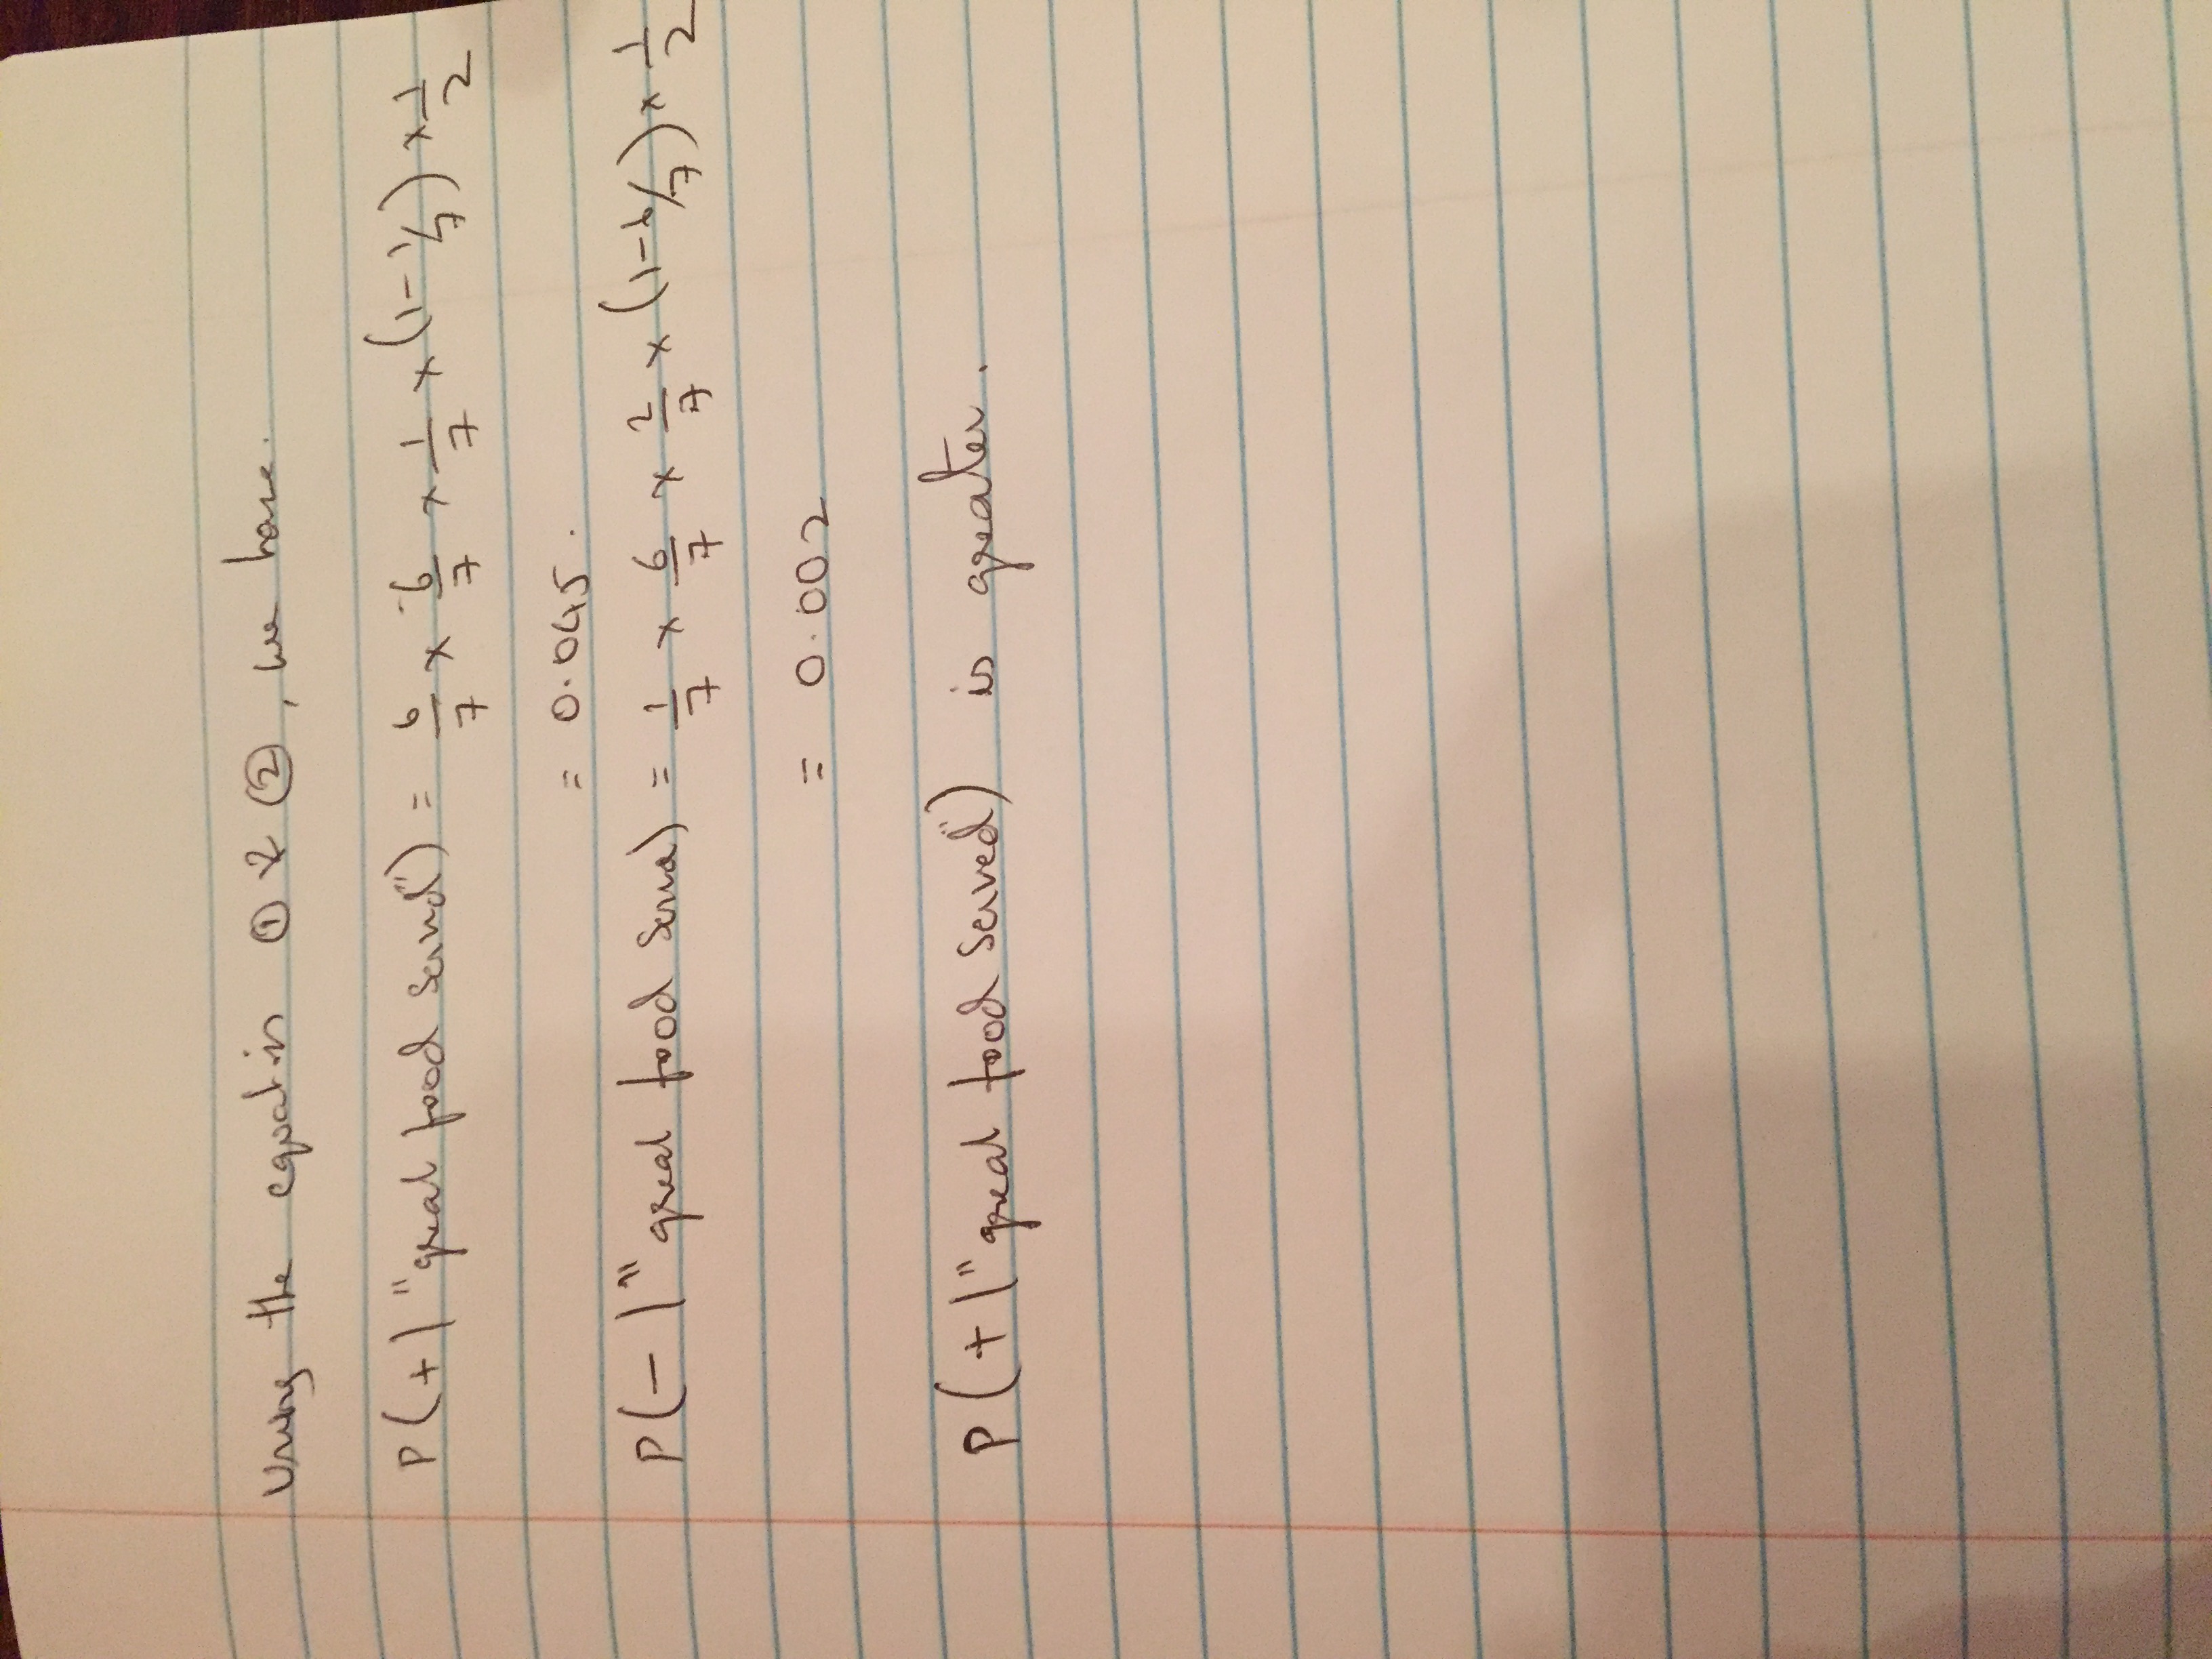 Using the equations ① & ②, we have.
P(+|"great food served") = 6/7 × 6/7 × 1/7 × (1-1/7) × 1/2
= 0.045.
P(-|"great food served) = 1/7 × 6/7 × 2/7 × (1-6/7) × 1/2
= 0.002
P(+|"great food served") is greater.